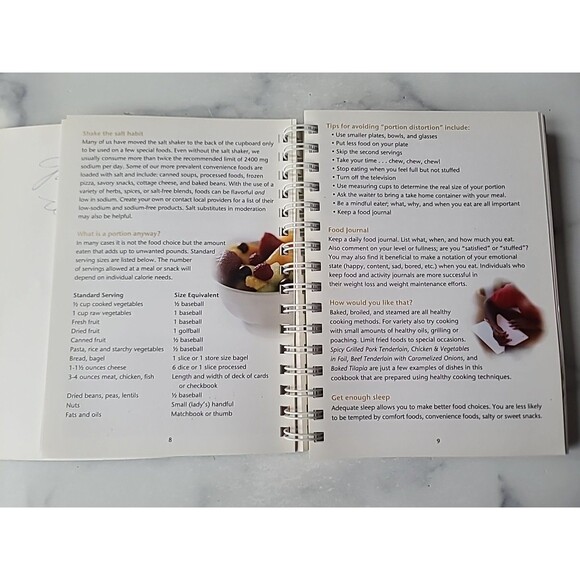 Shake the salt habit
Many of us have moved the salt shaker to the back of the cupboard only
to be used on a few special foods. Even without the salt shaker, we
usually consume more than twice the recommended limit of 2400 mg
sodium per day. Some of our more prevalent convenience foods are
loaded with salt and include; canned soups, processed foods, frozen
pizza, savory snacks, cottage cheese, and baked beans. With the use of a
variety of herbs, spices, or salt-free blends, foods can be flavorful and
low in sodium. Create your own or contact local providers for a list of their
low-sodium and sodium-free products. Salt substitutes in moderation
may also be helpful.
What is a portion anyway?
In many cases it is not the food choice but the amount
eaten that adds up to unwanted pounds. Standard
serving sizes are listed below. The number
of servings allowed at a meal or snack will
depend on individual calorie needs.
Standard Serving Size Equivalent
½ cup cooked vegetables ½ baseball
1 cup raw vegetables 1 baseball
Fresh fruit 1 baseball
Dried fruit 1 golfball
Canned fruit ½ baseball
Pasta, rice and starchy vegetables ½ baseball
Bread, bagel 1 slice or 1 store size bagel
1-1½ ounces cheese 6 dice or 1 slice processed
3-4 ounces meat, chicken, fish Length and width of deck of cards
or checkbook
Dried beans, peas, lentils ½ baseball
Nuts Small (lady's) handful
Fats and oils Matchbook or thumb
8
Tips for avoiding "portion distortion" include:
• Use smaller plates, bowls, and glasses
• Put less food on your plate
• Skip the second servings
• Take your time . . . chew, chew, chew!
• Stop eating when you feel full but not stuffed
• Turn off the television
• Use measuring cups to determine the real size of your portion
• Ask the waiter to bring a take home container with your meal.
• Be a mindful eater; what, why, and when you eat are all important
• Keep a food journal
Food Journal
Keep a daily food journal. List what, when, and how much you eat.
Also comment on your level or fullness; are you "satisfied" or "stuffed"?
You may also find it beneficial to make a notation of your emotional
state (happy, content, sad, bored, etc.) when you eat. Individuals who
keep food and activity journals are more successful in
their weight loss and weight maintenance efforts.
How would you like that?
Baked, broiled, and steamed are all healthy
cooking methods. For variety also try cooking
with small amounts of healthy oils, grilling or
poaching. Limit fried foods to special occasions.
Spicy Grilled Pork Tenderloin, Chicken & Vegetables
in Foil, Beef Tenderloin with Caramelized Onions, and
Baked Tilapia are just a few examples of dishes in this
cookbook that are prepared using healthy cooking techniques.
Get enough sleep
Adequate sleep allows you to make better food choices. You are less likely
to be tempted by comfort foods, convenience foods, salty or sweet snacks.
9